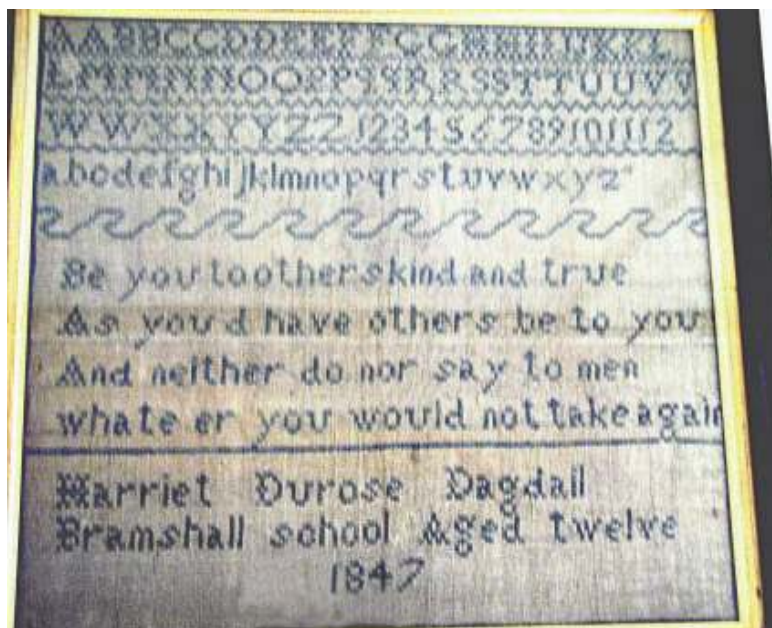 AABBCCDDEEFFGGHHIIJJKKL
LMMNNOOPPQQRRSSTTUUVV
WWXXYYZZ123456789101112
abcdefghijklmnopqrstuvwxyz
Be you to others kind and true
As you d have others be to you
And neither do nor say to men
whate er you would not take again
Harriet Durose Dagdall
Bramshall school Aged twelve
1847